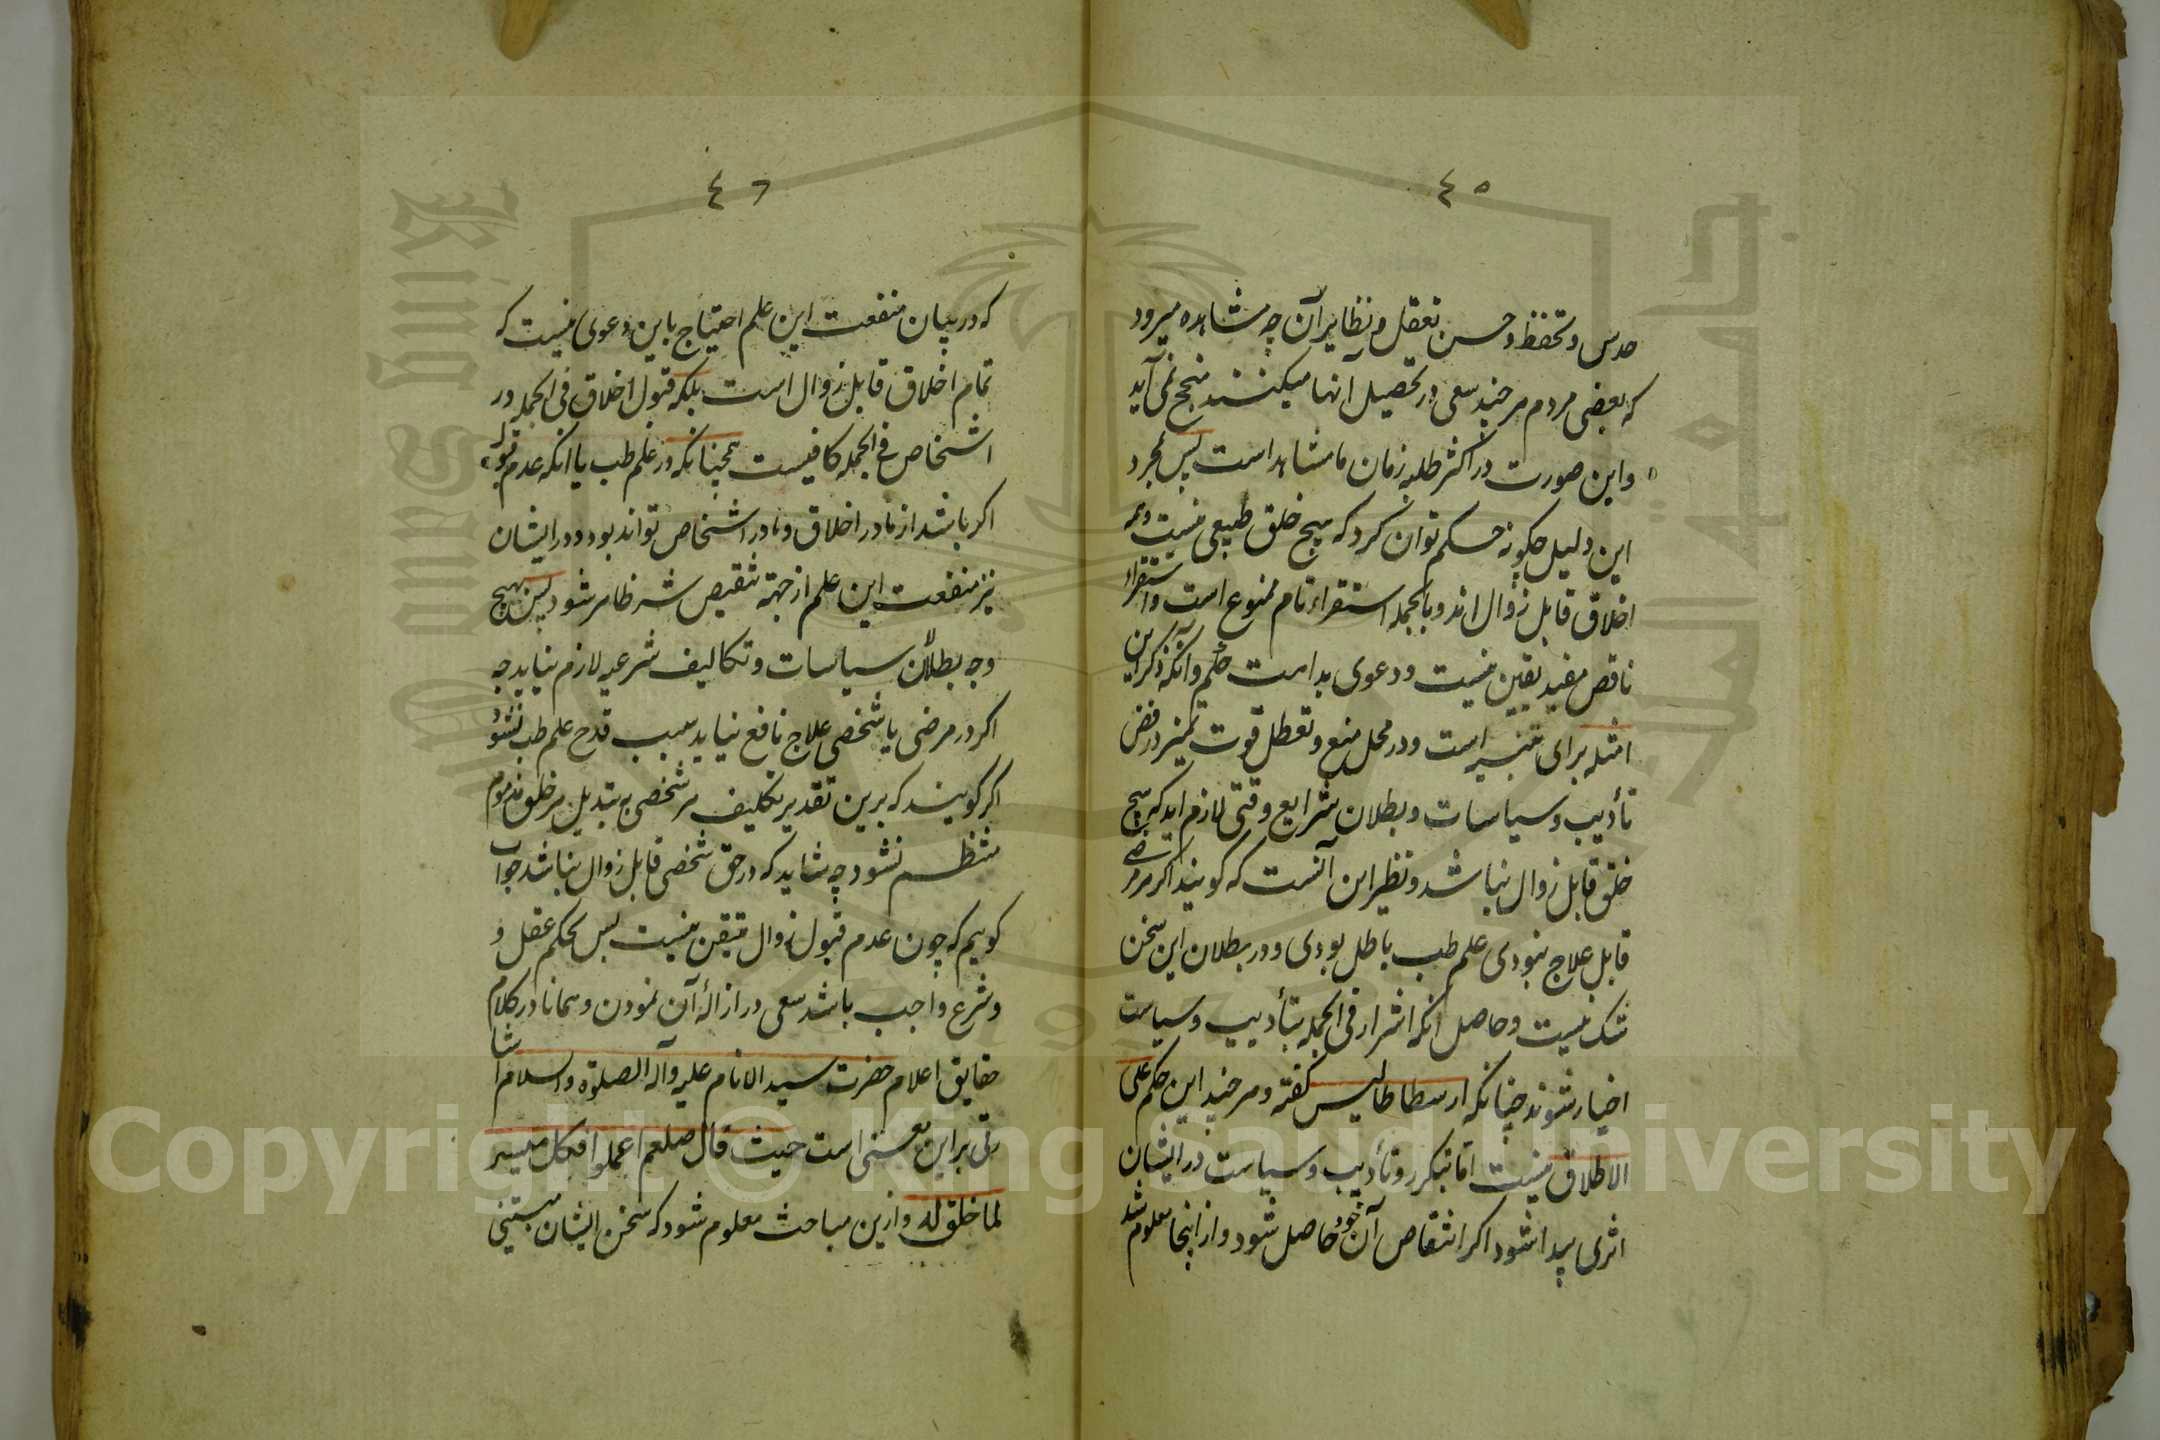 ٤٥
حدس و تحفظ و حسن تعقل و نظایر آن چه مشاهده میرود
که بعضی مردم هر چند سعی در تحصیل آنها میکنند منجح نمی آید
و این صورت در اکثر طلبه زمان ما مشاهد است پس بمجرد
این دلیل چکونه حکم توان کرد که هیچ خلق طبیعی نیست و همه
اخلاق قابل زوال اند و بالجمله استقراء تام ممنوع است و استقراء
ناقص مفید یقین نیست و دعوی بداهت حکم و آنکه ذکر این
امثله برای تنبیه است و در محل منع و تعطل قوت تمیز و رفض
تأدیب و سیاسات و بطلان شرایع وقتی لازم اید که هیچ
خلق قابل زوال نباشد و نظیر این آنست که کویند اکر مرضی
قابل علاج نبودی علم طب باطل بودی و در بطلان این سخن
شک نیست و حاصل انکه اشرار فی الجمله بتأدیب و سیاست
اخیار شوند چنانکه ارسطاطالیس کفته و هر چند این حکم علی
الاطلاق نیست اما بتکرر و تأدیب و سیاست در ایشان
اثری پیدا شود اکر انتقاص آن خود حاصل شود و از اینجا معلوم شد
٤٦
که در بیان منفعت این علم احتیاج باین دعوی نیست که
تمام اخلاق قابل زوال است بلکه قبول اخلاق فی الجمله در
اشخاص فی الجمله کافیست همچنانکه در علم طب با انکه عدم قبول
اکر باشد از نادر اخلاق و نادر اشخاص تواند بود و در ایشان
نیز منفعت این علم از جهة تنقیص شر ظاهر شود پس بهیچ
وجه بطلان سیاسات و تکالیف شرعیه لازم نیاید چه
اکر در مرضی یا شخصی علاج نافع نیاید سبب قدح علم طب نشود
اکر کویند که برین تقدیر تکلیف هر شخصی به تبدیل هر خلق مذموم
منتظم نشود چه شاید که در حق شخصی قابل زوال نباشد جواب
کوییم که چون عدم قبول زوال متیقن نیست پس بحکم عقل و
و شرع واجب باشد سعی در ازالهٔ آن نمودن و همانا در کلام
حقایق اعلام حضرت سید الانام علیه وآله الصلوة والسلام اشا
رتی براین معنی است حیث قال صلعم اعملوا فکل میسر
لما خلق له و ازین مباحث معلوم شود که سخن ایشان مبتنی
Copyright © King Saud University
King Saud